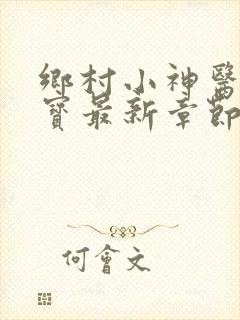 鄉村小神醫
寶最新章節
何會文